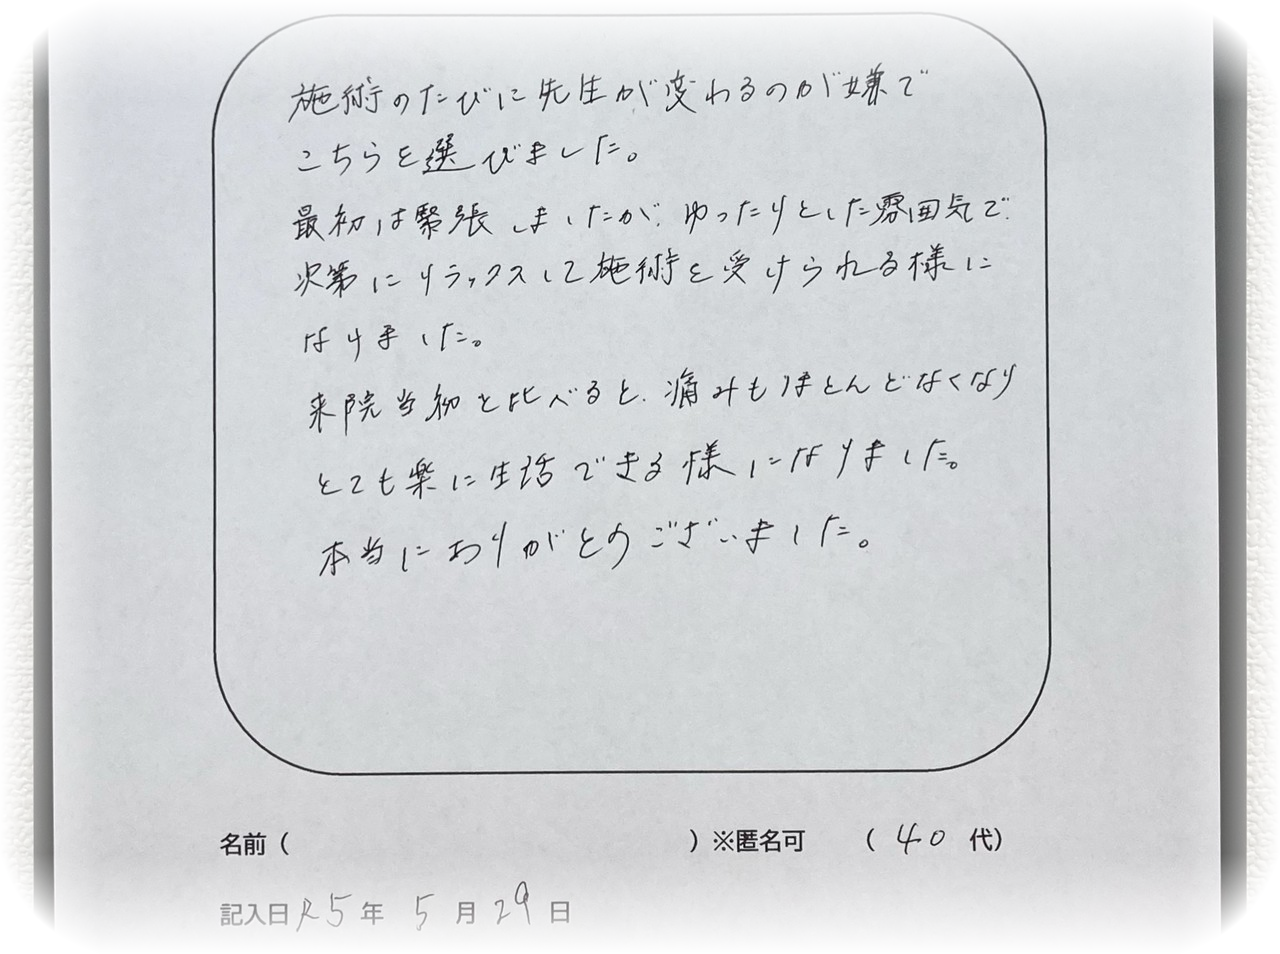 施術のたびに先生が変わるのが嫌で
こちらを選びました。
最初は緊張しましたが、ゆったりとした雰囲気で、
次第にリラックスして施術を受けられる様に
なりました。
来院当初と比べると、痛みもほとんどなくなり
とても楽に生活できる様になりました。
本当にありがとのございました。
名前（　　　）※匿名可　（ 40 代）
記入日 R5年 5月 29日